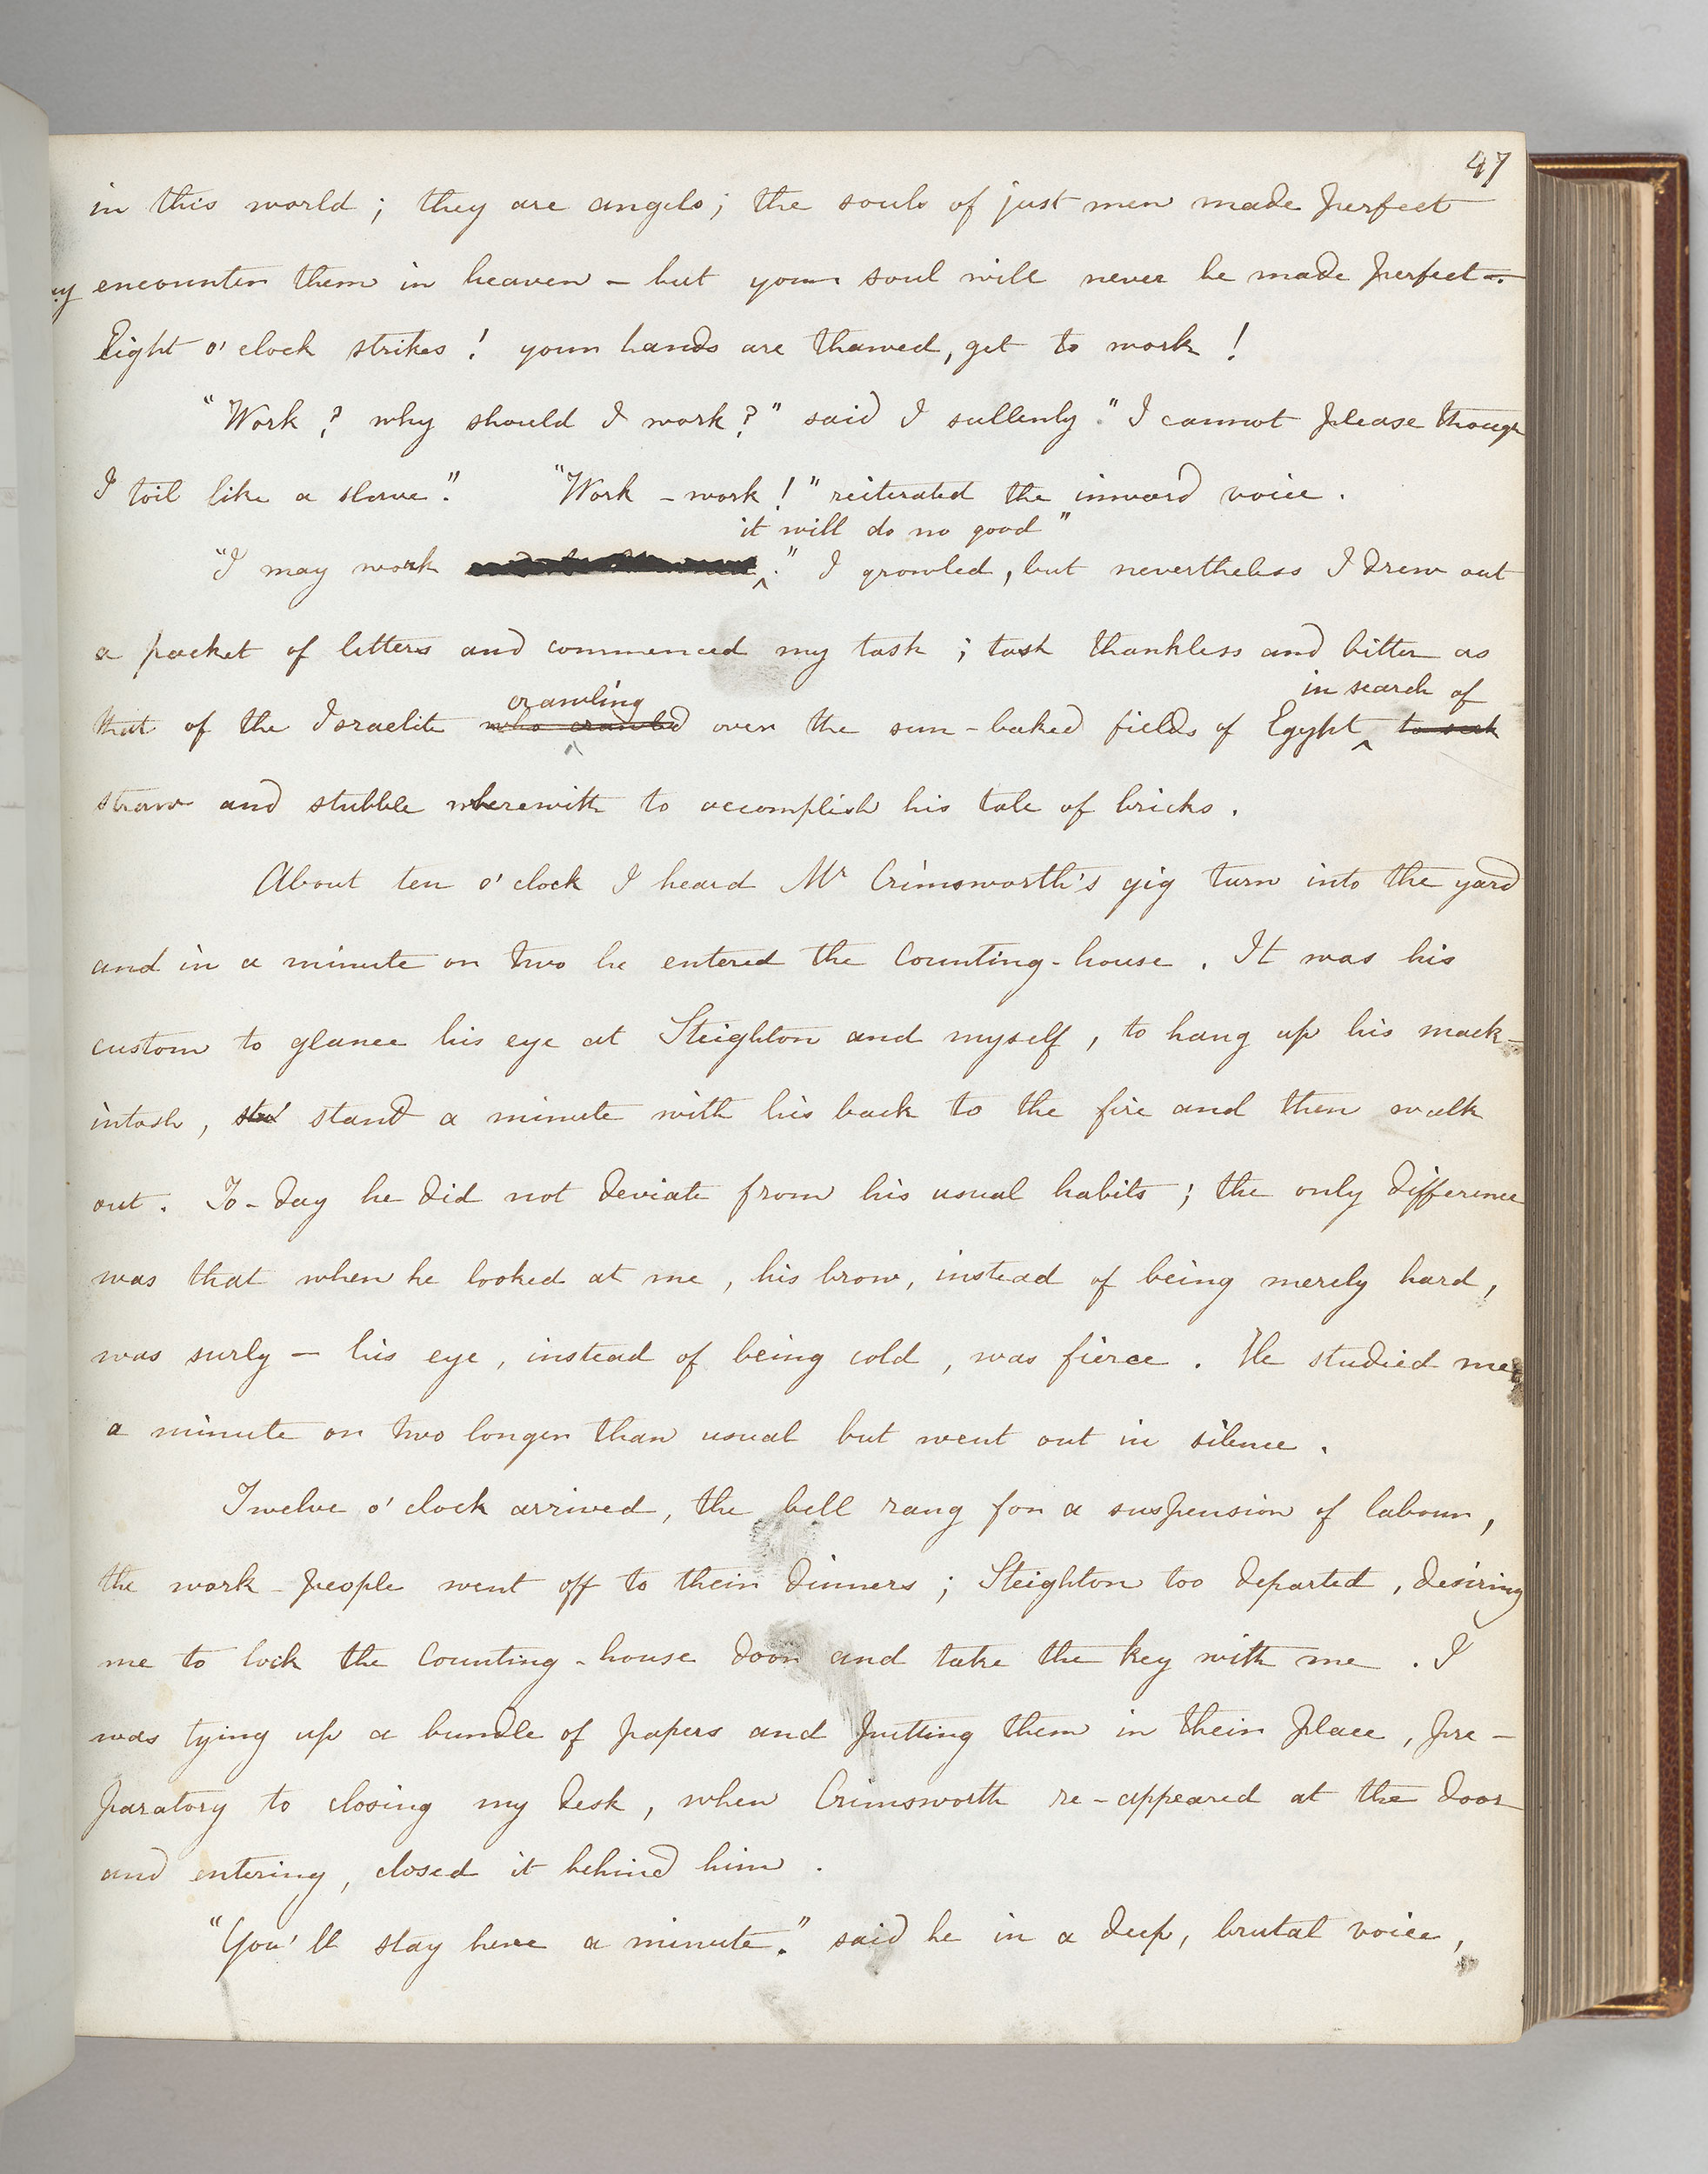 47
in this world; they are angels; the souls of just men made perfect
encounter them in heaven – but your soul will never be made perfect –.
Eight o'clock strikes! your hands are thawed, get to work!
"Work? why should I work?" said I sullenly. "I cannot please though
I toil like a slave." "Work – work!" reiterated the inward voice.
it will do no good"
"I may work ." I growled, but nevertheless I drew out
a packet of letters and commenced my task; task thankless and bitter as
crawling in search of
that of the Israelite who crawled over the sun-baked fields of Egypt to seek
straw and stubble wherewith to accomplish his tale of bricks.
About ten o'clock I heard Mr Crimsworth's gig turn into the yard
and in a minute or two he entered the counting-house. It was his
custom to glance his eye at Steighton and myself, to hang up his mack-
intosh, stand a minute with his back to the fire and then walk
out. To-day he did not deviate from his usual habits; the only difference
was that when he looked at me, his brow, instead of being merely hard,
was surly – his eye, instead of being cold, was fierce. He studied me
a minute or two longer than usual but went out in silence.
Twelve o'clock arrived, the bell rang for a suspension of labour,
the work-people went off to their dinners; Steighton too departed, desiring
me to lock the counting-house door and take the key with me. I
was tying up a bundle of papers and putting them in their place, pre-
paratory to closing my desk, when Crimsworth re-appeared at the door
and entering, closed it behind him.
"You'll stay here a minute." said he in a deep, brutal voice,